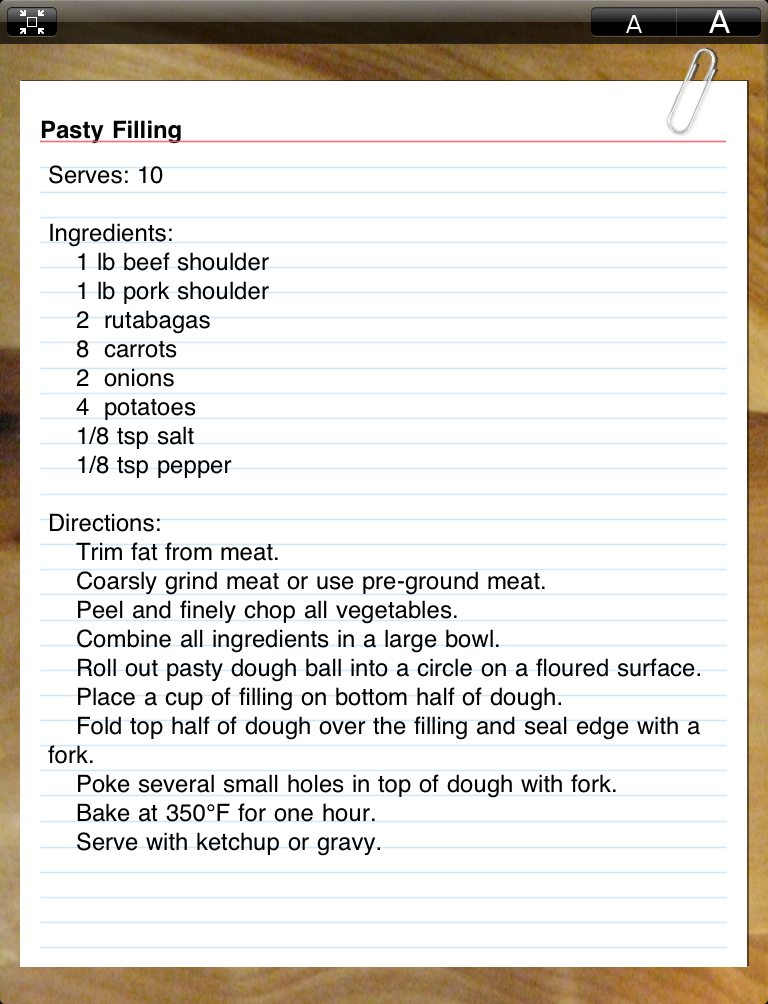 A A
Pasty Filling
Serves: 10
Ingredients:
1 lb beef shoulder
1 lb pork shoulder
2  rutabagas
8  carrots
2  onions
4  potatoes
1/8 tsp salt
1/8 tsp pepper
Directions:
Trim fat from meat.
Coarsly grind meat or use pre-ground meat.
Peel and finely chop all vegetables.
Combine all ingredients in a large bowl.
Roll out pasty dough ball into a circle on a floured surface.
Place a cup of filling on bottom half of dough.
Fold top half of dough over the filling and seal edge with a
fork.
Poke several small holes in top of dough with fork.
Bake at 350°F for one hour.
Serve with ketchup or gravy.